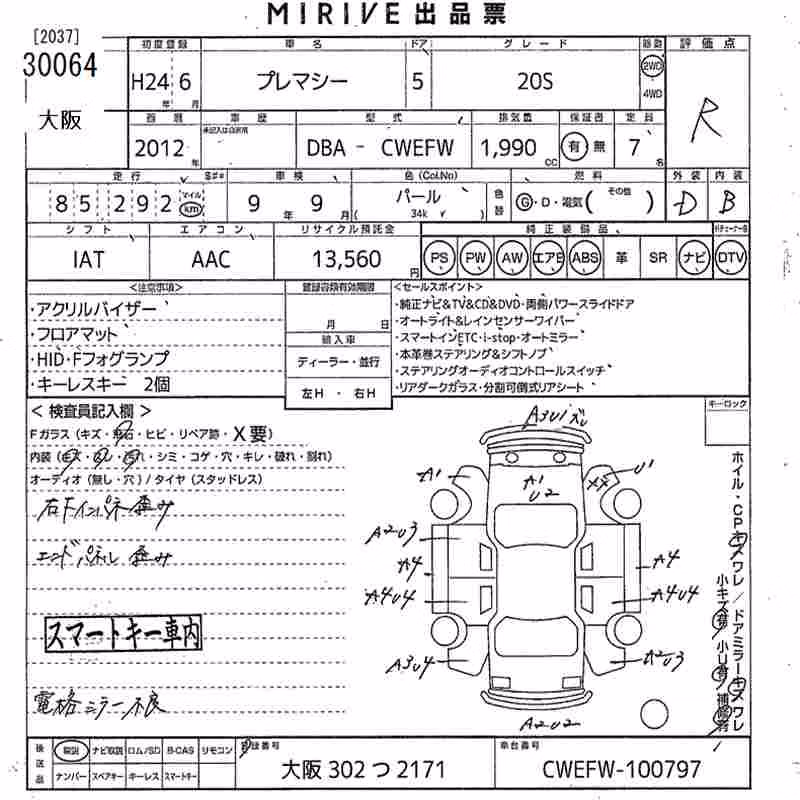 MIRIVE 出品票
[2037]
30064
大阪
初度登録 車名 ドア グレード 駆動 評価点
H24 6 プレマシー 5 20S 2WD 4WD R
年 月
西暦 車歴 型式 排気量 保証書 定員
2012年 DBA - CWEFW 1,990 CC 有 無 7 名
走行 車検 色(Col.No) 燃料 外装 内装
85,292 マイル km 9年 9月 パール 34k 色替 G・D・電気( その他 ) D B
シフト エアコン リサイクル預託金 純正装備品
IAT AAC 13,560円 PS PW AW エアB ABS 革 SR ナビ DTV
<注意事項> 登録書類有効期限 <セールスポイント>
・アクリルバイザー
・フロアマット
・HID・Fフォグランプ
・キーレスキー 2個
月 日
輸入車
ディーラー・並行
左H ・ 右H
・純正ナビ&TV&CD&DVD・両側パワースライドドア
・オートライト&レインセンサーワイパー
・スマートインETC・i-stop・オートミラー
・本革巻ステアリング&シフトノブ
・ステアリングオーディオコントロールスイッチ
・リアダークガラス・分割可倒式リアシート
キーロック
< 検査員記入欄 >
Fガラス (キズ・飛石・ヒビ・リペア跡・X要)
内装 (キズ・ヨレ・汚れ・シミ・コゲ・穴・キレ・破れ・割れ)
オーディオ (無し・穴) / タイヤ (スタッドレス)
右Fインパネ歪み
エンドパネル 歪み
スマートキー車内
電格ミラー不良
A3U1ズレ
A1
A1
U2
XX
U1
A2U3
A4
A4
A4U4
A4U4
A3U4
A2U3
A2U2
ホイル・CPキズワレ/ドアミラーキズワレ
小キズ有/小U有/補修有
後送品 取説 ナビ取説 ロム/SD B-CAS リモコン 登録番号 車台番号
ナンバー スペアキー キーレス スマートキー 大阪 302 つ 2171 CWEFW-100797